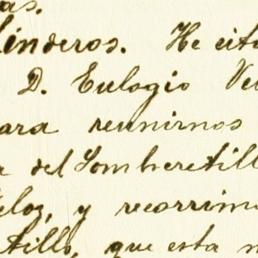 as.
Linderos. He cita
D. Eulogio Ve
para reunirnos
del Sombreretill
y recorrim
tillo, que esta